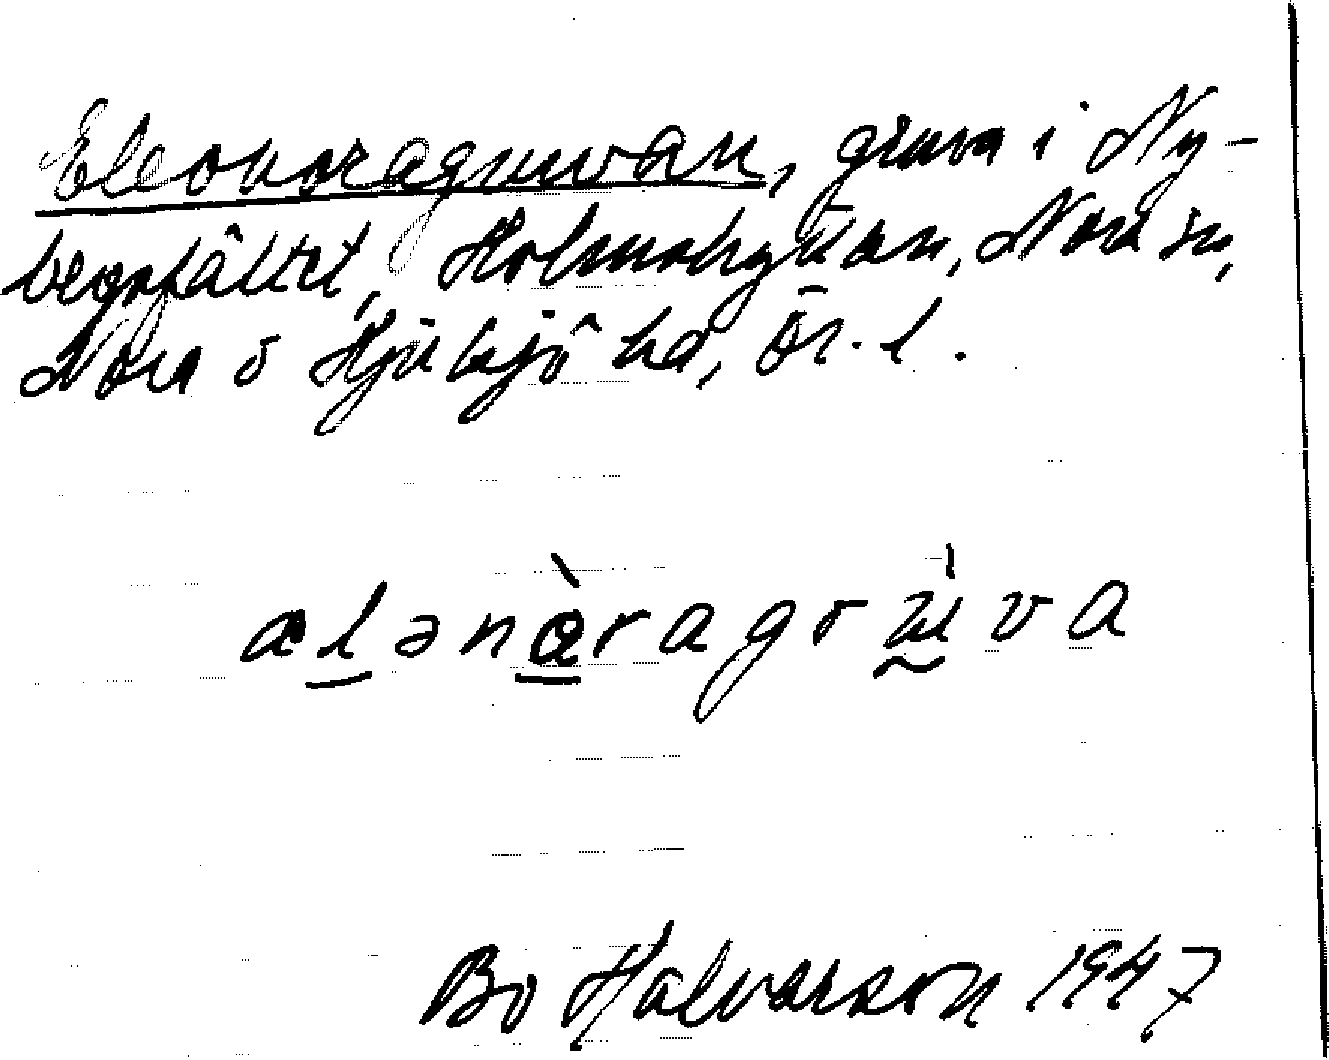 Eleonoragruvan, gruva i Ny-
bergsfältet, Holmshyttan, Nora sn,
Nora o Hjulsjö hd, Ör. l.
alənàragrùva
Bo Halvarson 1947